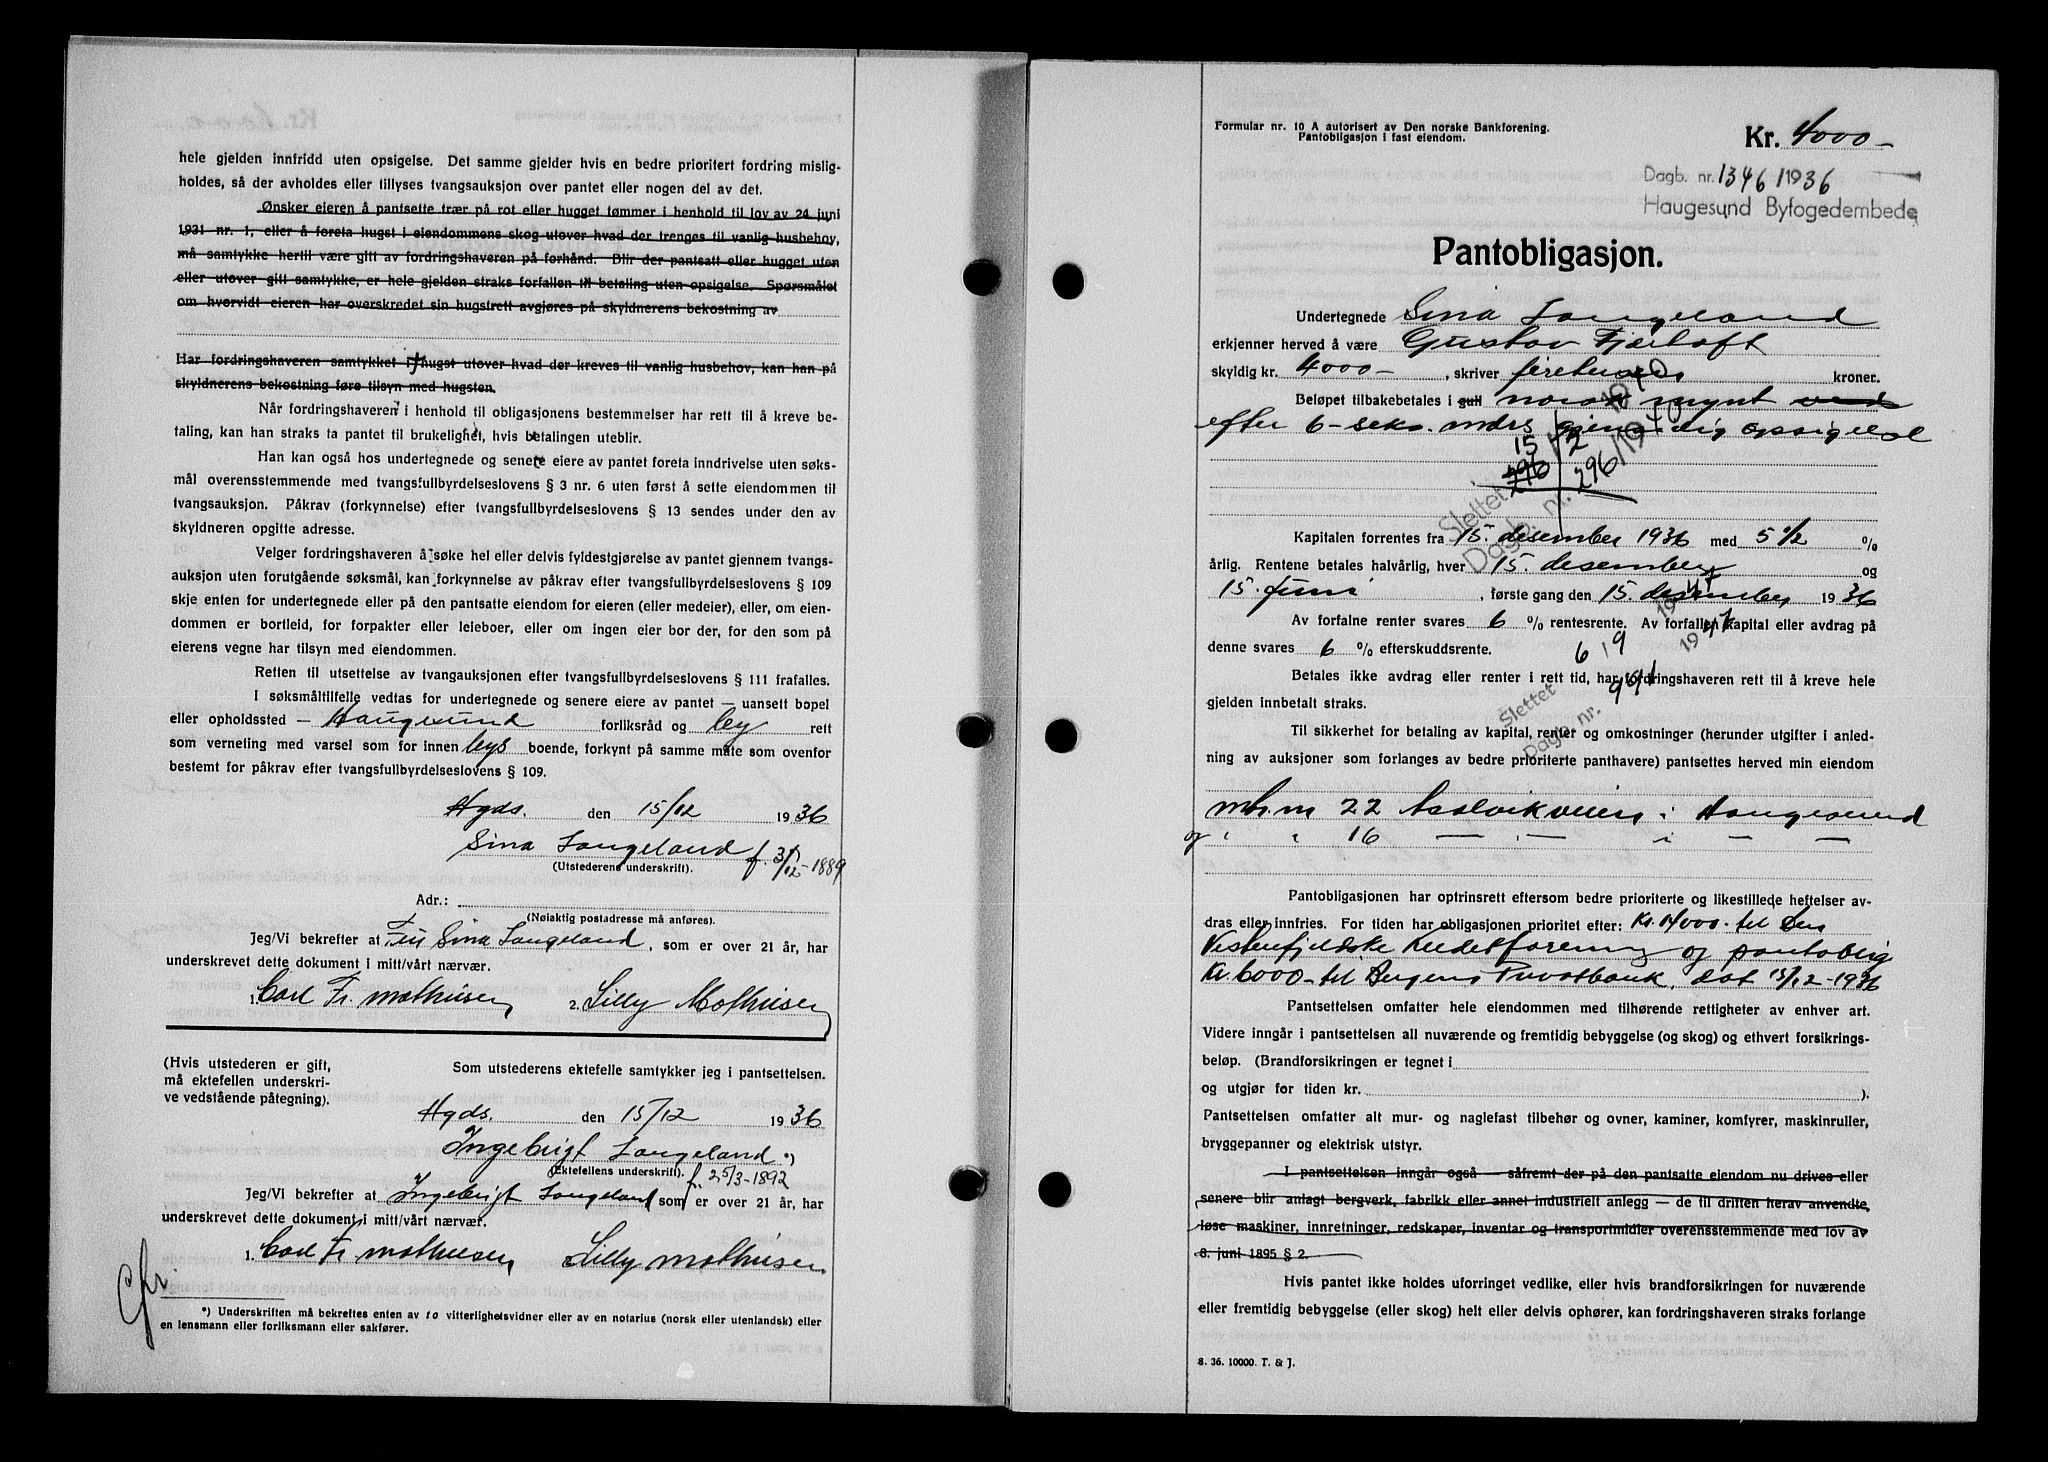 hele gjelden innfridd uten opsigelse. Det samme gjelder hvis en bedre prioritert fordring mislig-
holdes, så der avholdes eller tillyses tvangsauksjon over pantet eller nogen del av det.
Ønsker eieren å pantsette trær på rot eller hugget tømmer i henhold til lov av 24 juni
1931 nr. 1, eller å foreta hugst i eiendommens skog utover hvad der trenges til vanlig husbehov,
må samtykke hertil være gitt av fordringshaveren på forhånd. Blir der pantsatt eller hugget uten
eller utover gitt samtykke, er hele gjelden straks forfallen til betaling uten opsigelse. Spørsmålet
om hvorvidt eieren har overskredet sin hugstrett avgjøres på skyldnerens bekostning av
Har fordringshaveren samtykket i hugst utover hvad der kreves til vanlig husbehov, kan han på
skyldnerens bekostning føre tilsyn med hugsten.
Når fordringshaveren i henhold til obligasjonens bestemmelser har rett til å kreve be-
taling, kan han straks ta pantet til brukelighet, hvis betalingen uteblir.
Han kan også hos undertegnede og senere eiere av pantet foreta inndrivelse uten søks-
mål overensstemmende med tvangsfullbyrdelseslovens § 3 nr. 6 uten først å sette eiendommen til
tvangsauksjon. Påkrav (forkynnelse) efter tvangsfullbyrdelseslovens § 13 sendes under den av
skyldneren opgitte adresse.
Velger fordringshaveren å søke hel eller delvis fyldestgjørelse av pantet gjennem tvangs-
auksjon uten forutgående søksmål, kan forkynnelse av påkrav efter tvangsfullbyrdelseslovens § 109
skje enten for undertegnede eller på den pantsatte eiendom for eieren (eller medeier), eller, om eien-
dommen er bortleid, for forpakter eller leieboer, eller om ingen eier bor der, for den som på
eierens vegne har tilsyn med eiendommen.
Retten til utsettelse av tvangauksjonen efter tvangsfullbyrdelseslovens § 111 frafalles.
I søksmåltilfelle vedtas for undertegnede og senere eiere av pantet — uansett bopel
eller opholdssted — Haugesund forliksråd og by rett
som verneting med varsel som for innen bys boende, forkynt på samme måte som ovenfor
bestemt for påkrav efter tvangsfullbyrdelseslovens § 109.
Hgds. den 15/12 1936
Sina Langeland f. 3/12-1889
(Utstederens underskrift).
Adr.:
(Nøiaktig postadresse må anføres).
Jeg/Vi bekrefter at Fru Sina Langeland, som er over 21 år, har
underskrevet dette dokument i mitt/vårt nærvær.
1. Carl Fr. Mathiesen 2. Lilly Mathiesen
(Hvis utstederen er gift,
må ektefellen underskri-
ve vedstående påtegning).
Som utstederens ektefelle samtykker jeg i pantsettelsen.
Hgds. den 15/12 1936
Ingebrigt Langeland *)
(Ektefellens underskrift). f. 25/3-1892
Jeg/Vi bekrefter at Ingebrigt Langeland som er over 21 år, har
underskrevet dette dokument i mitt/vårt nærvær.
1. Carl Fr. Mathiesen, Lilly Mathiesen
*) Underskriften må bekreftes enten av to vitterlighetsvidner eller av en notarius (norsk eller utenlandsk) eller
en lensmann eller forliksmann eller sakfører.
Formular nr. 10 A autorisert av Den norske Bankforening.
Pantobligasjon i fast eiendom.
Kr. 4000-
Dagb. nr. 1346/1936
Haugesund Byfogedembede
Pantobligasjon.
Undertegnede Sina Langeland
erkjenner herved å være Gustav Fjærtoft
skyldig kr. 4000-, skriver firetusen kroner.
Beløpet tilbakebetales i gull norsk mynt
efter 6-seks. mdrs gjensidig opsigelse
15/2 1940
296
Slettet
Dagb. nr. 296/1940
Kapitalen forrentes fra 15. desember 1936 med 5 1/2 %
årlig. Rentene betales halvårlig, hver 15. desember og
15. juni, første gang den 15. desember 1936
Av forfalne renter svares 6 % rentesrente. Av forfallen kapital eller avdrag på
denne svares 6 % efterskuddsrente.
Slettet 6/9 1947
Dagb. nr. 1947
Betales ikke avdrag eller renter i rett tid, har fordringshaveren rett til å kreve hele
gjelden innbetalt straks.
Til sikkerhet for betaling av kapital, renter og omkostninger (herunder utgifter i anled-
ning av auksjoner som forlanges av bedre prioriterte panthavere) pantsettes herved min eiendom
mtr. nr 22 Aasalvikveien i Haugesund
og " " 16 — " — i — —
Pantobligasjonen har optrinsrett eftersom bedre prioriterte og likestillede heftelser av-
dras eller innfries. For tiden har obligasjonen prioritet efter: Kr. 14000- til Den
Vestenfjeldske Kreditforening og pantoblig
Kr. 6000- til Bergens Privatbank, dat 15/12-1936
Pantsettelsen omfatter hele eiendommen med tilhørende rettigheter av enhver art.
Videre inngår i pantsettelsen all nuværende og fremtidig bebyggelse (og skog) og ethvert forsikrings-
beløp. (Brandforsikringen er tegnet i
og utgjør for tiden kr. ).
Pantsettelsen omfatter alt mur- og naglefast tilbehør og ovner, kaminer, komfyrer, maskinruller,
bryggepanner og elektrisk utstyr.
I pantsettelsen inngår også — såfremt der på den pantsatte eiendom nu drives eller
senere blir anlagt bergverk, fabrikk eller annet industrielt anlegg — de til driften herav anvendte,
løse maskiner, innretninger, redskaper, inventar og transportmidler overensstemmende med lov av
8. juni 1895 § 2.
Hvis pantet ikke holdes uforringet vedlike, eller hvis brandforsikringen for nuværende
eller fremtidig bebyggelse (eller skog) helt eller delvis ophører, kan fordringshaveren straks forlange
8. 36. 10000. T. & J.